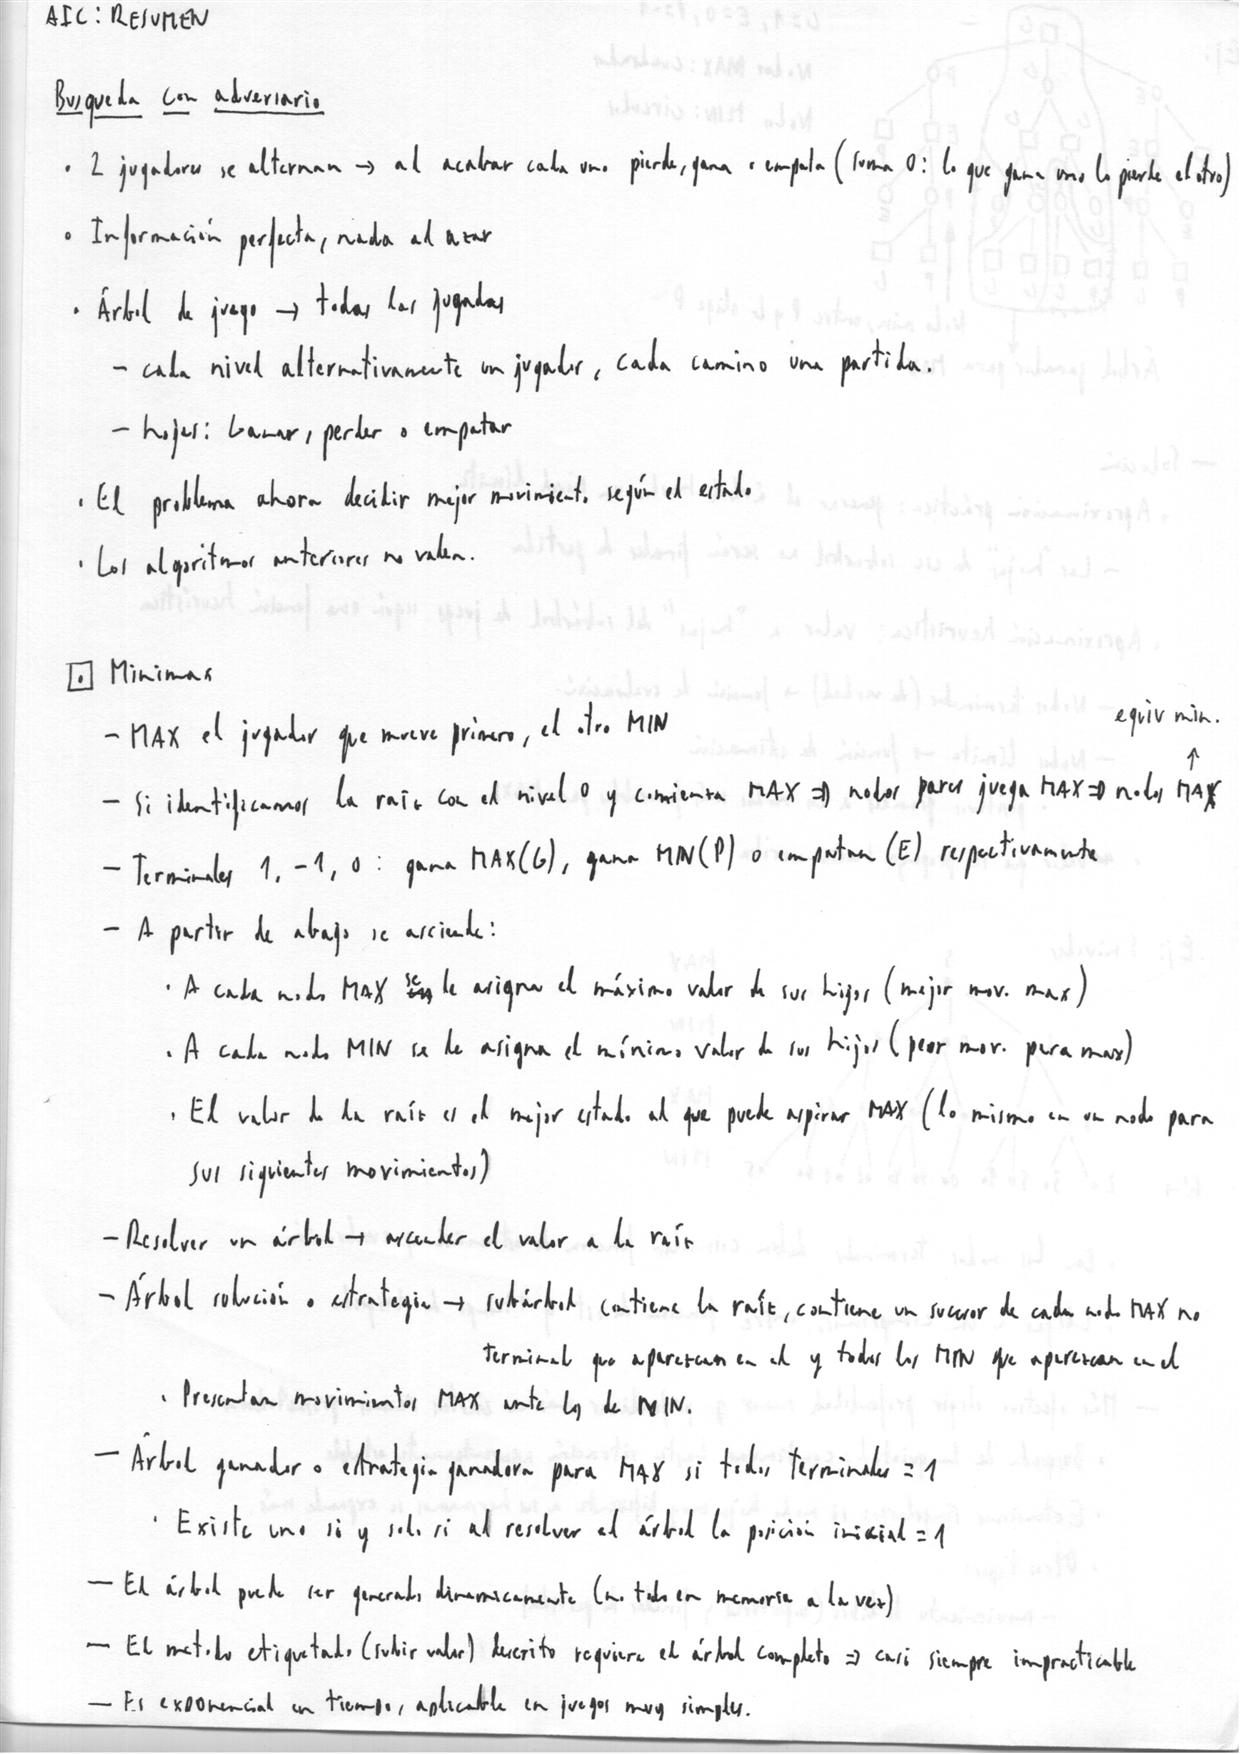 AIC: RESUMEN
Busqueda con adversario
· 2 jugadores se alternan → al acabar cada uno pierde, gana o empata (suma 0: lo que gana uno lo pierde el otro)
· Información perfecta, nada al azar
· Árbol de juego → todas las jugadas
- cada nivel alternativamente un jugador, cada camino una partida.
- hojas: Ganar, perder o empatar
· El problema ahora decidir mejor movimiento según el estado
· Los algoritmos anteriores no valen.
⊡ Minimax
- MAX el jugador que mueve primero, el otro MIN
equiv min.
↑
- Si identificamos la raíz con el nivel 0 y comienza MAX ⇒ nodos pares juega MAX ⇒ nodos MAX
- Terminales 1, -1, 0 : gana MAX(G), gana MIN(P) o empatan (E) respectivamente
- A partir de abajo se asciende:
· A cada nodo MAX se le asigna el máximo valor de sus hijos (mejor mov. max)
· A cada nodo MIN se le asigna el mínimo valor de sus hijos (peor mov. para max)
· El valor de la raíz es el mejor estado al que puede aspirar MAX (lo mismo en un nodo para
sus siguientes movimientos)
- Resolver un árbol → ascender el valor a la raíz
- Árbol solución o estrategia → subárbol contiene la raíz, contiene un sucesor de cada nodo MAX no
terminal que aparezcan en el y todos los MIN que aparezcan en el
· Presentan movimientos MAX ante los de MIN.
- Árbol ganador o estrategia ganadora para MAX si todos terminales = 1
· Existe uno si y solo si al resolver el árbol la posición inicial = 1
- El árbol puede ser generado dinamicamente (no todo en memoria a la vez)
- El metodo etiquetado (subir valor) descrito requiere el árbol completo ⇒ casi siempre impracticable
- Es exponencial en tiempo, aplicable en juegos muy simples.